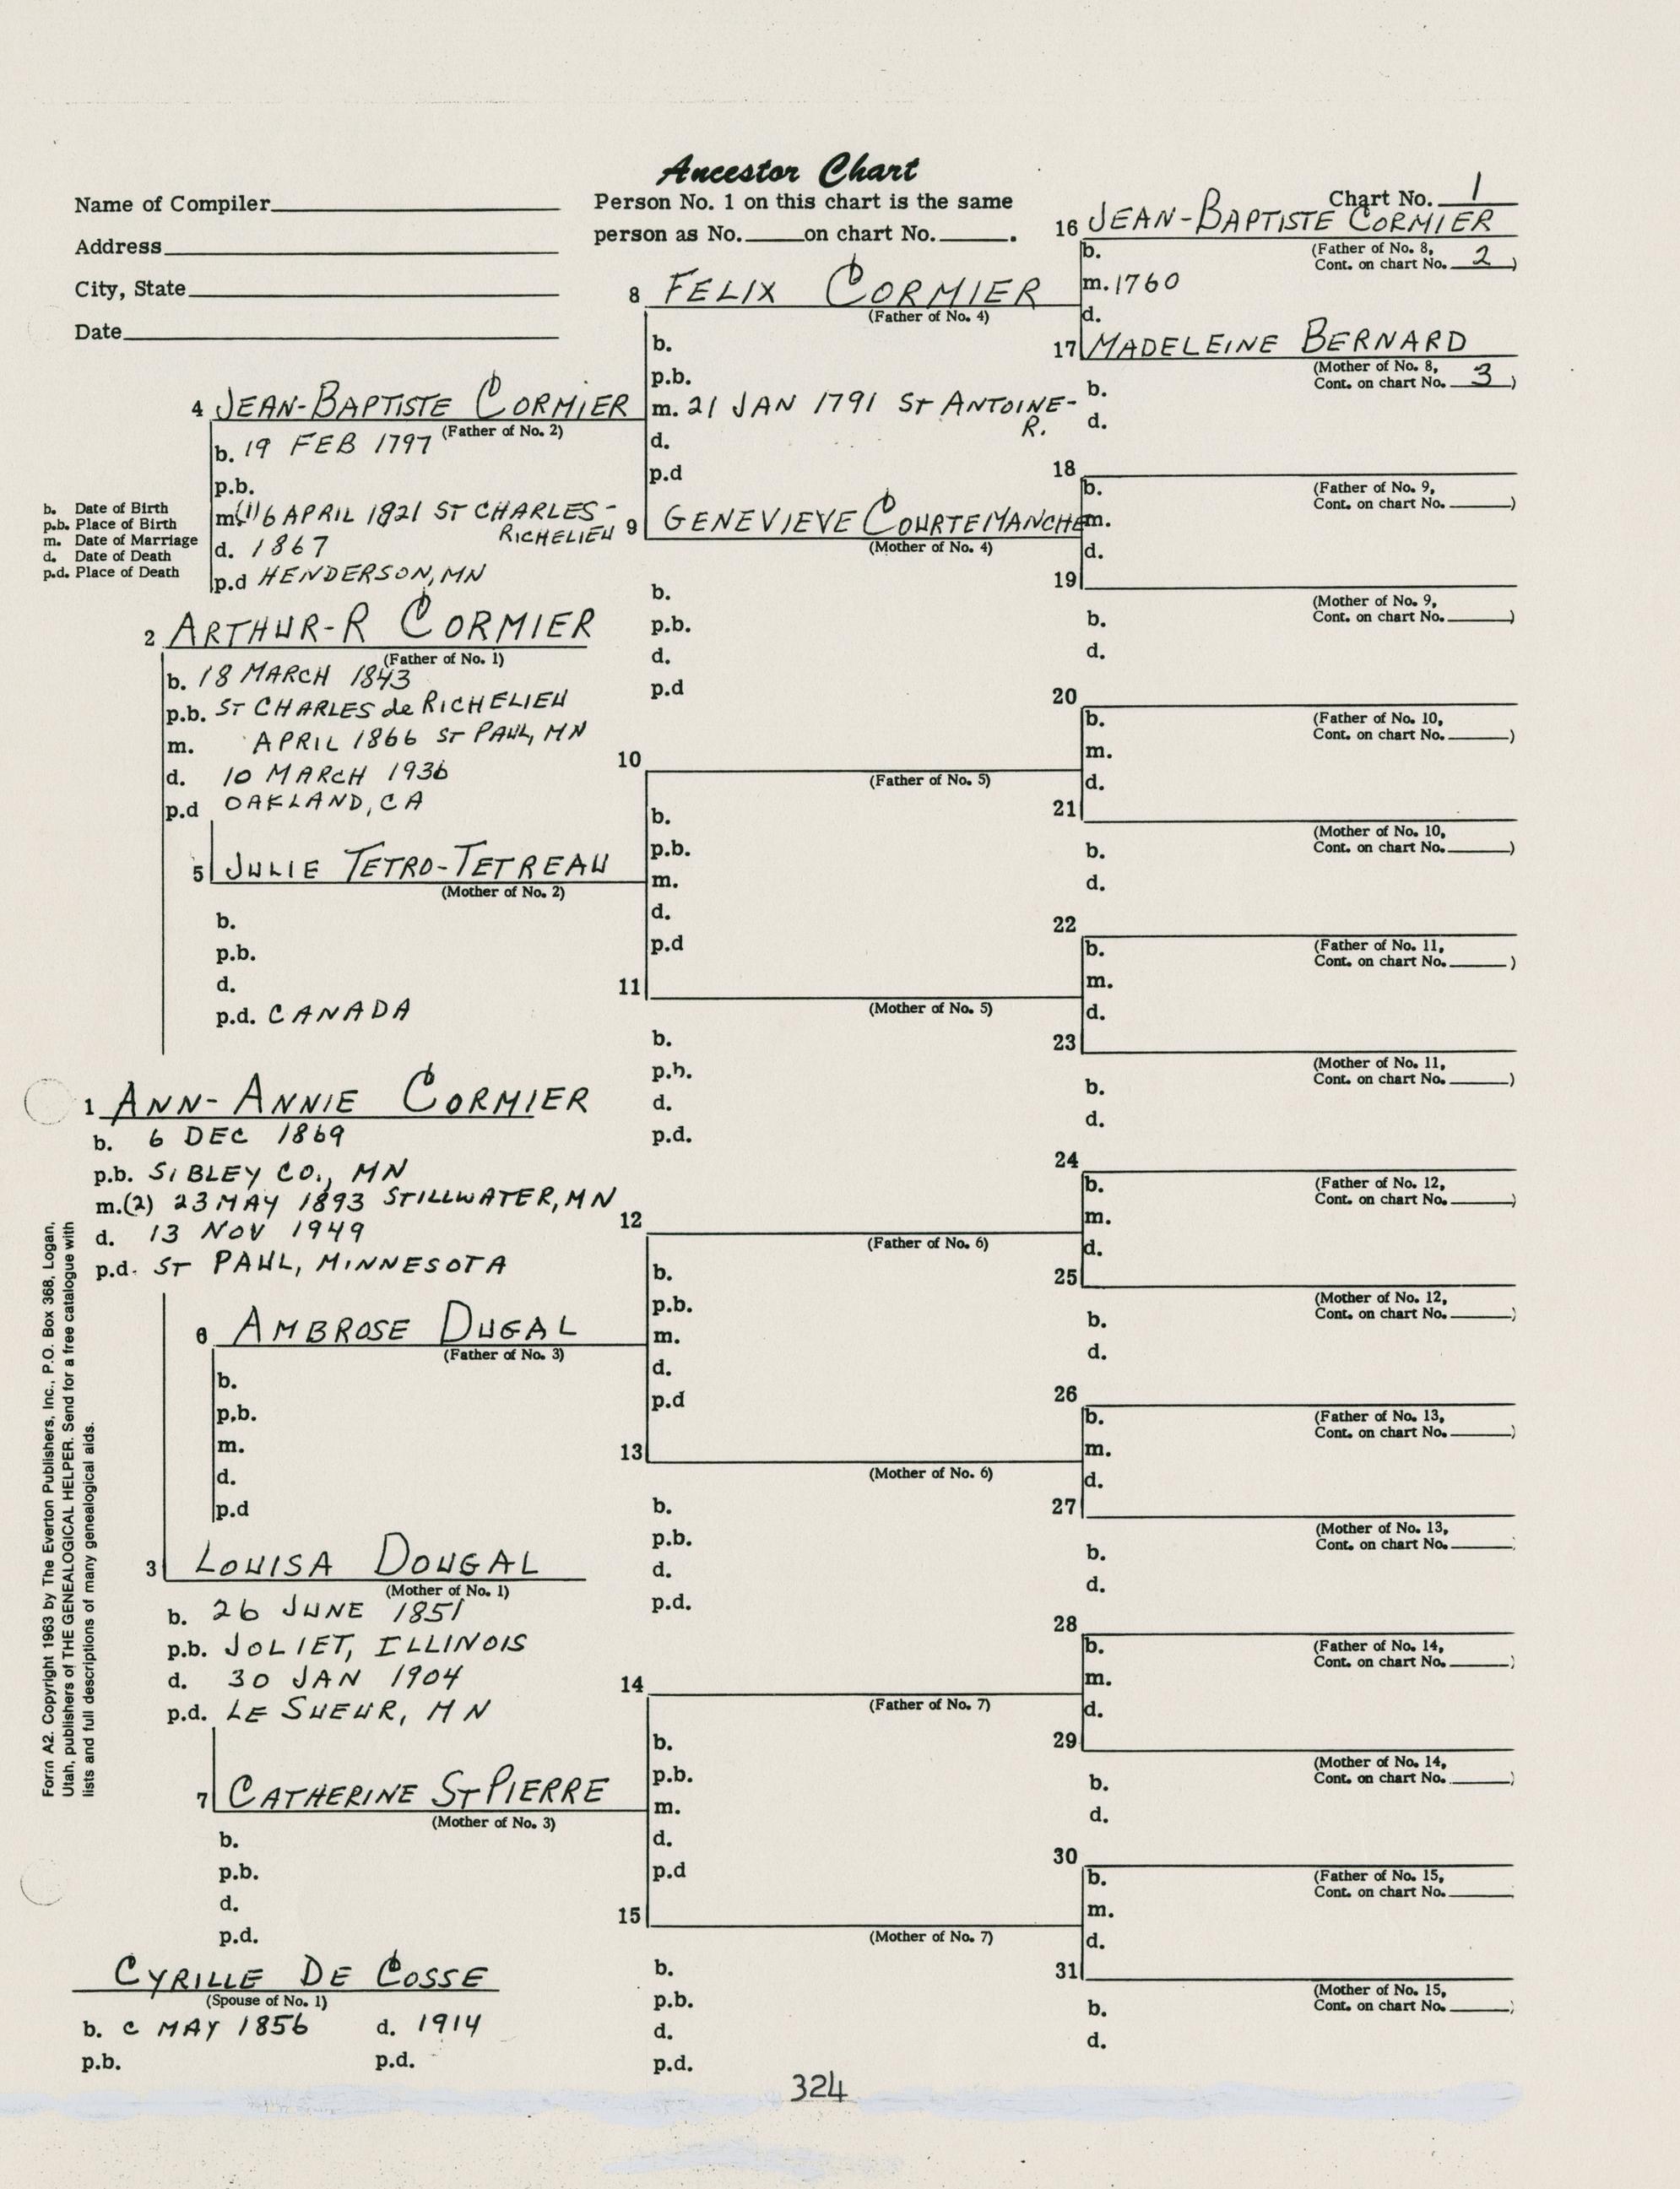 Ancestor Chart
Name of Compiler
Address
City, State
Date
Person No. 1 on this chart is the same
person as No. on chart No. .
Chart No. 1
16 JEAN-BAPTISTE CORMIER
(Father of No. 8,
Cont. on chart No. 2 )
b.
m. 1760
d.
8 FELIX CORMIER
(Father of No. 4)
b.
p.b.
m. 21 JAN 1791 ST ANTOINE-
R.
d.
p.d
17 MADELEINE BERNARD
(Mother of No. 8,
Cont. on chart No. 3 )
b.
d.
4 JEAN-BAPTISTE CORMIER
(Father of No. 2)
b. 19 FEB 1797
p.b.
m(1) 16 APRIL 1821 ST CHARLES-
RICHELIEU
d. 1867
p.d HENDERSON, MN
b. Date of Birth
p.b. Place of Birth
m. Date of Marriage
d. Date of Death
p.d. Place of Death
18
(Father of No. 9,
Cont. on chart No. )
b.
m.
d.
9 GENEVIEVE COURTEMANCHE
(Mother of No. 4)
b.
p.b.
d.
p.d
19
(Mother of No. 9,
Cont. on chart No. )
b.
d.
2 ARTHUR-R CORMIER
(Father of No. 1)
b. 18 MARCH 1843
p.b. ST CHARLES de RICHELIEU
m. APRIL 1866 ST PAUL, MN
d. 10 MARCH 1936
p.d OAKLAND, CA
20
(Father of No. 10,
Cont. on chart No. )
b.
m.
d.
10
(Father of No. 5)
b.
p.b.
m.
d.
p.d
21
(Mother of No. 10,
Cont. on chart No. )
b.
d.
5 JULIE TETRO-TETREAU
(Mother of No. 2)
b.
p.b.
d.
p.d. CANADA
22
(Father of No. 11,
Cont. on chart No. )
b.
m.
d.
11
(Mother of No. 5)
b.
p.b.
d.
p.d.
23
(Mother of No. 11,
Cont. on chart No. )
b.
d.
1 ANN-ANNIE CORMIER
b. 6 DEC 1869
p.b. SIBLEY CO., MN
m.(2) 23 MAY 1893 STILLWATER, MN
d. 13 NOV 1949
p.d. ST PAUL, MINNESOTA
24
(Father of No. 12,
Cont. on chart No. )
b.
m.
d.
12
(Father of No. 6)
b.
p.b.
m.
d.
p.d
25
(Mother of No. 12,
Cont. on chart No. )
b.
d.
6 AMBROSE DUGAL
(Father of No. 3)
b.
p.b.
m.
d.
p.d
26
(Father of No. 13,
Cont. on chart No. )
b.
m.
d.
13
(Mother of No. 6)
b.
p.b.
d.
p.d.
27
(Mother of No. 13,
Cont. on chart No.
b.
d.
3 LOUISA DOUGAL
(Mother of No. 1)
b. 26 JUNE 1851
p.b. JOLIET, ILLINOIS
d. 30 JAN 1904
p.d. LE SUEUR, MN
28
(Father of No. 14,
Cont. on chart No. )
b.
m.
d.
14
(Father of No. 7)
b.
p.b.
m.
d.
p.d
29
(Mother of No. 14,
Cont. on chart No. )
b.
d.
7 CATHERINE ST PIERRE
(Mother of No. 3)
b.
p.b.
d.
p.d.
30
(Father of No. 15,
Cont. on chart No.
b.
m.
d.
15
(Mother of No. 7)
b.
p.b.
d.
p.d.
31
(Mother of No. 15,
Cont. on chart No. )
b.
d.
CYRILLE DE COSSE
(Spouse of No. 1)
b. c MAY 1856 d. 1914
p.b. p.d.
324
Form A2. Copyright 1963 by The Everton Publishers, Inc., P.O. Box 368, Logan,
Utah, publishers of THE GENEALOGICAL HELPER. Send for a free catalogue with
lists and full descriptions of many genealogical aids.